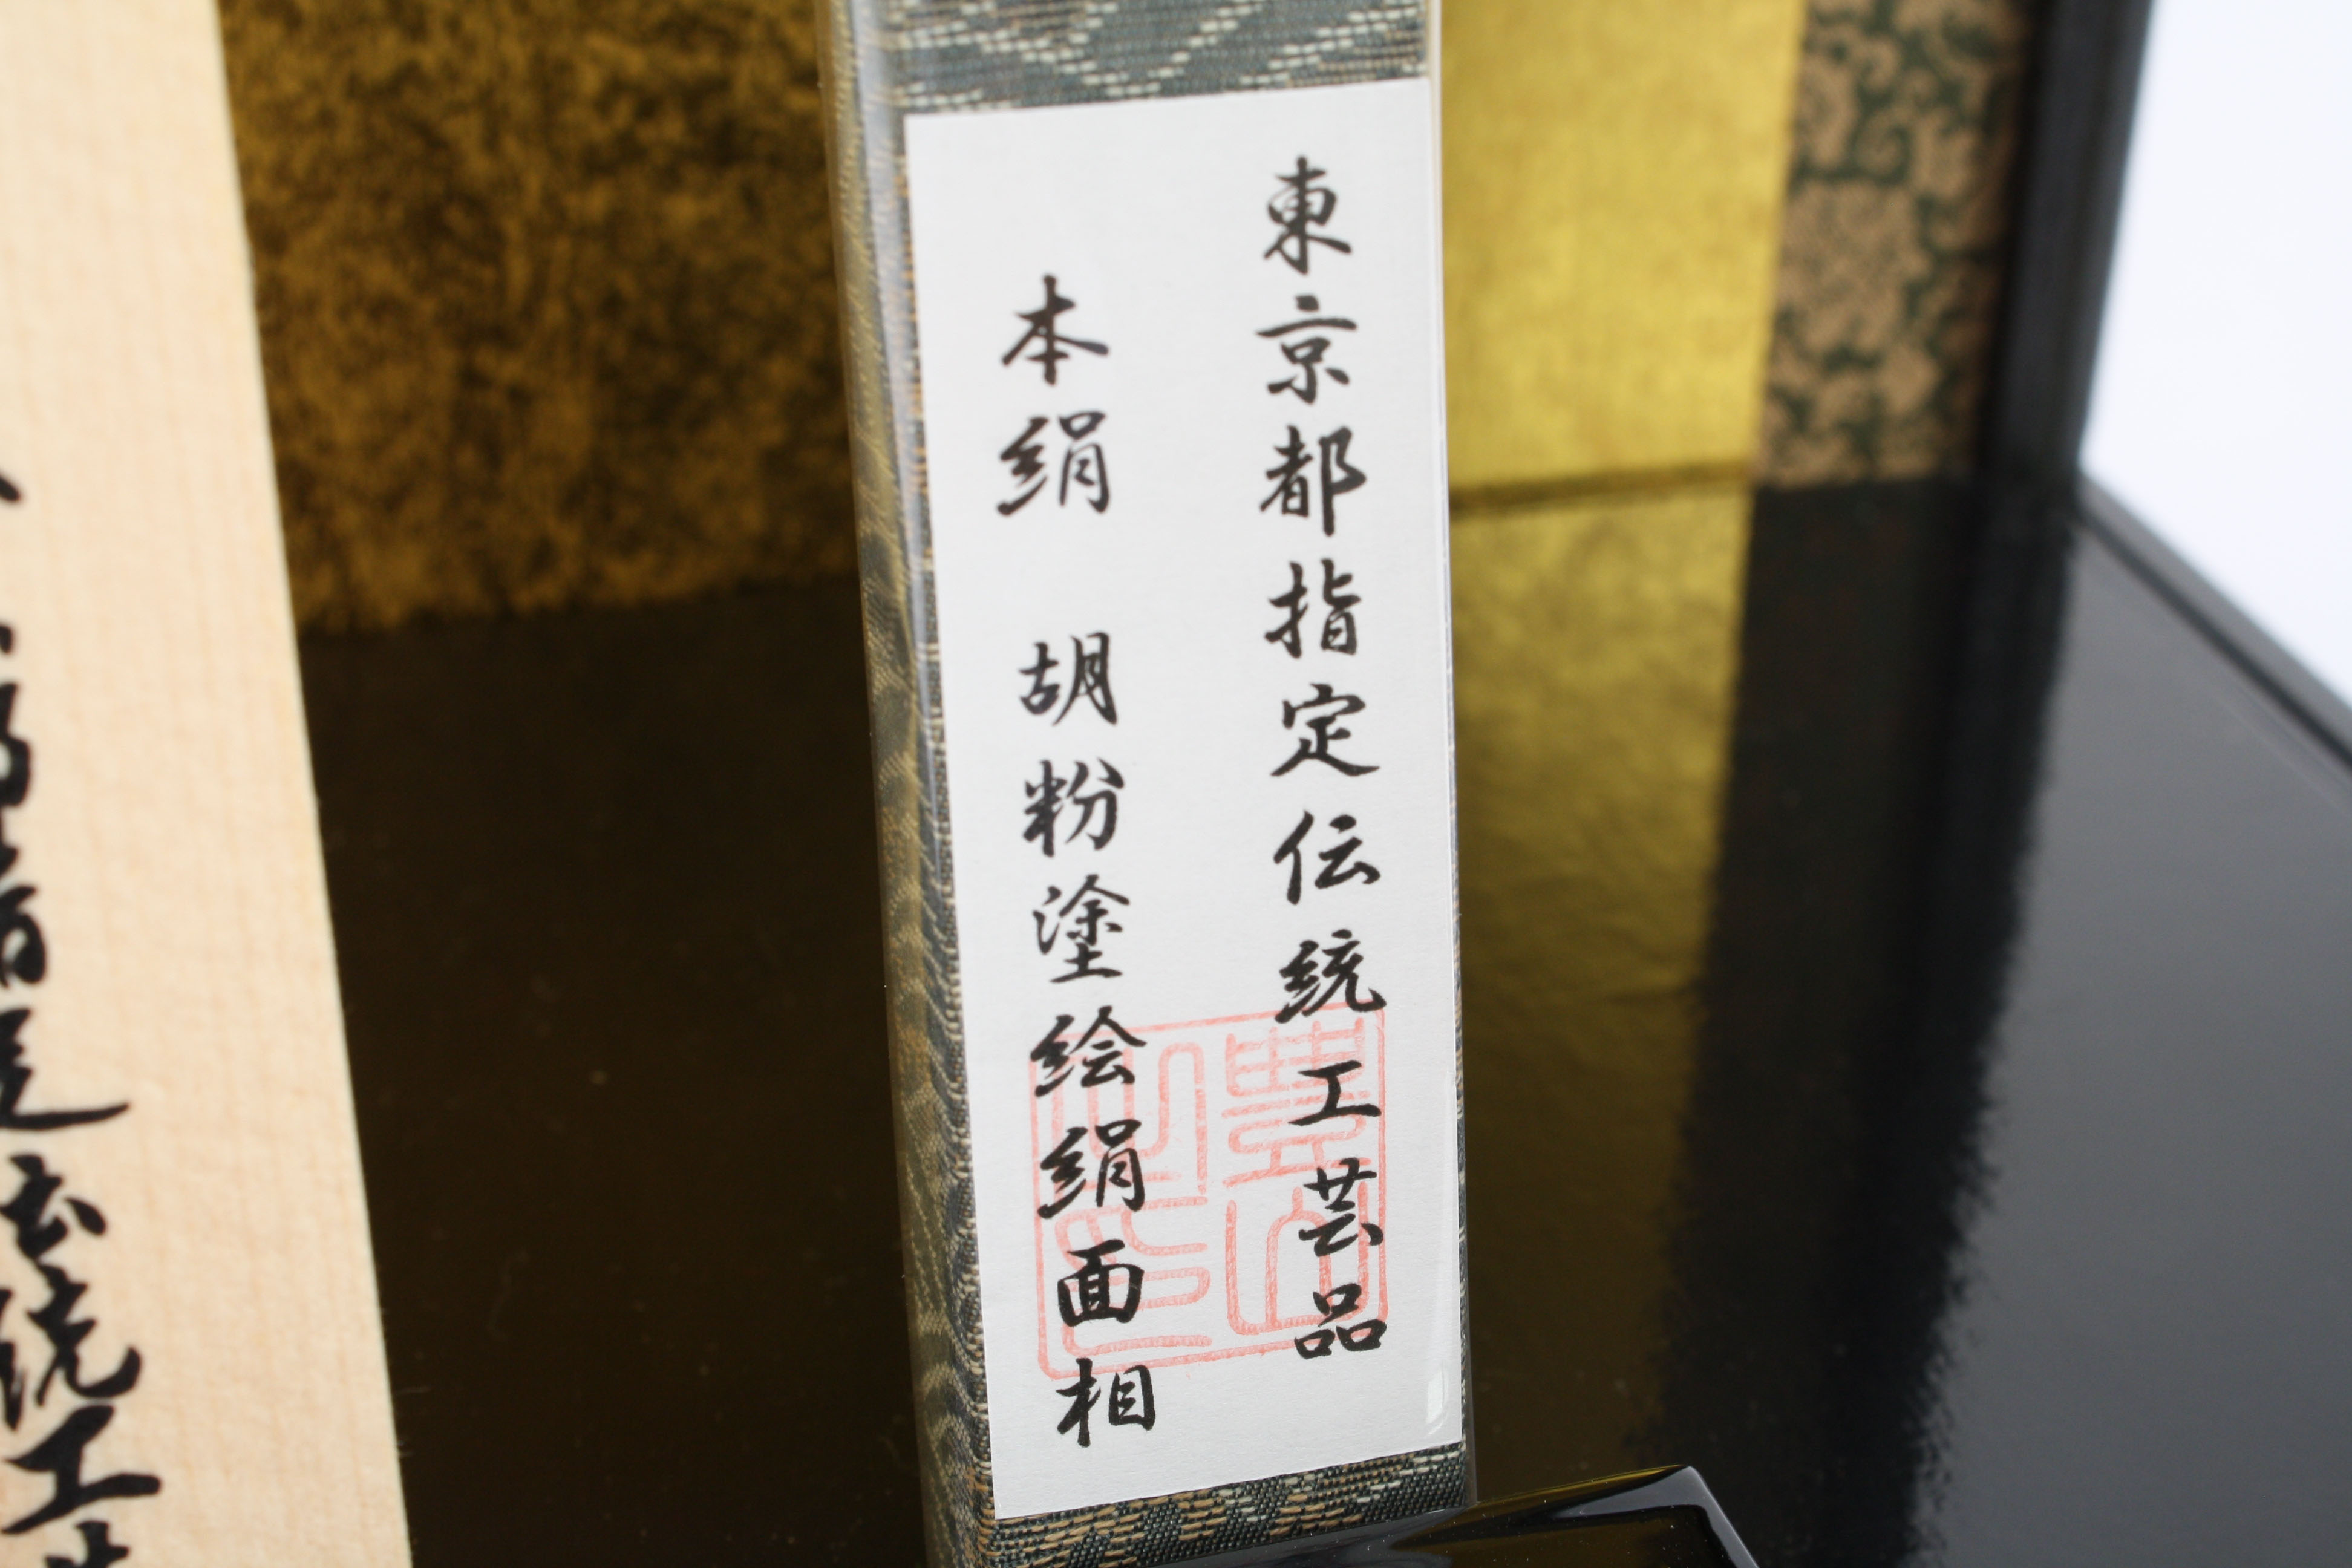 東京都指定伝統工芸品
本絹 胡粉塗絵絹面相
伝統工芸